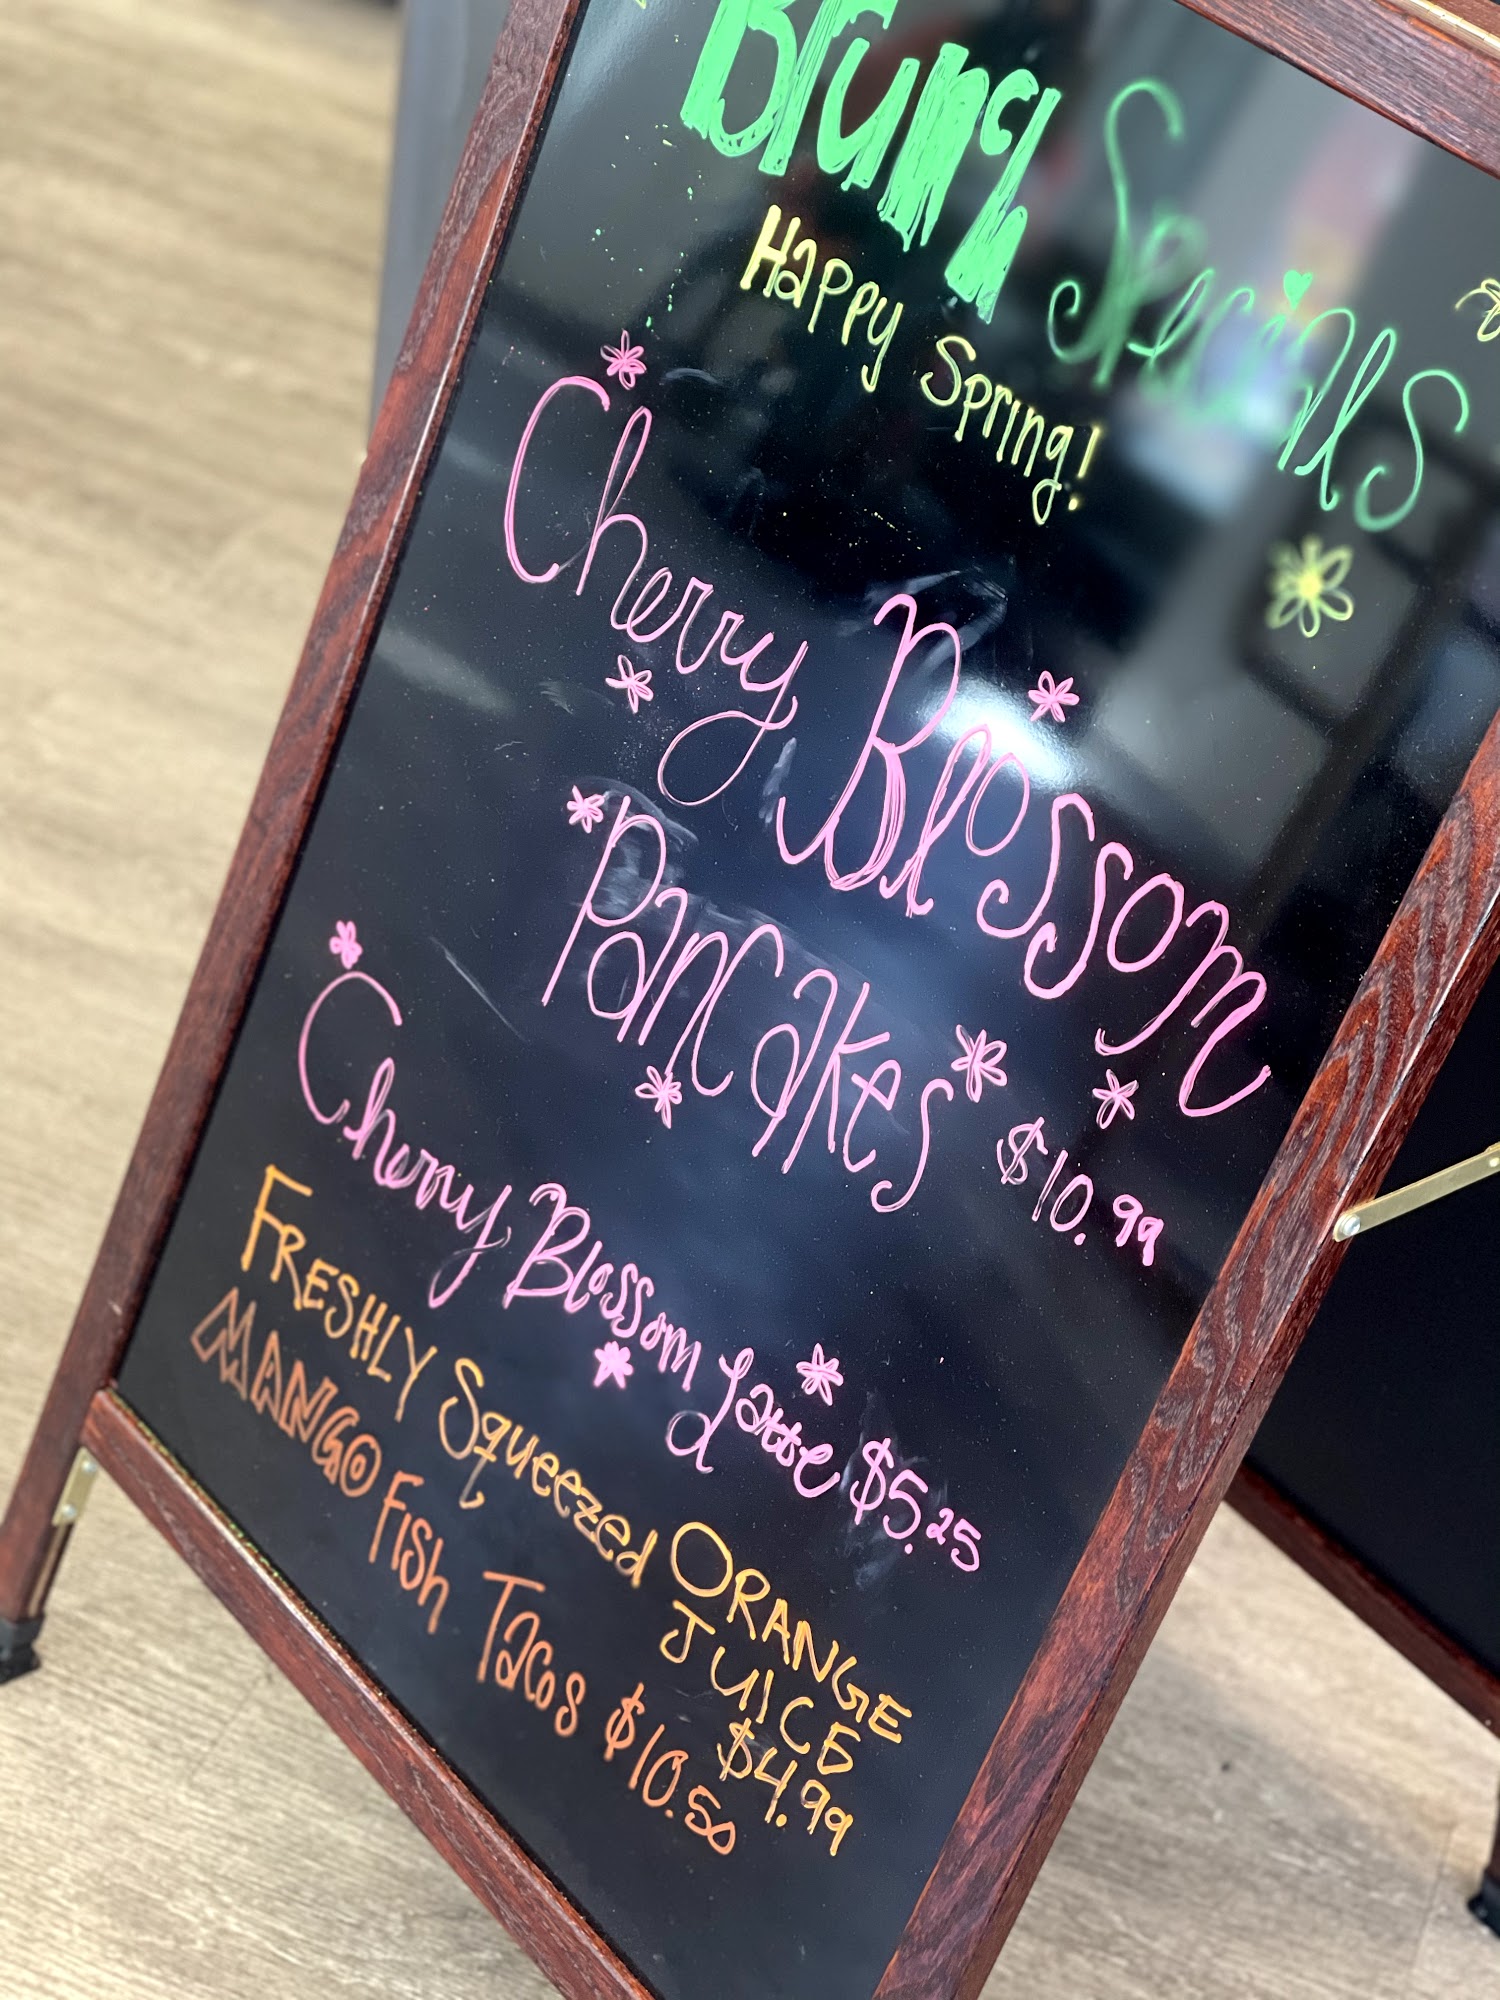 Brunch Specials
Happy Spring!
Cherry Blossom
Pancakes $10.99
Cherry Blossom Latte $5.25
FRESHLY Squeezed ORANGE
JUICE
$4.99
MANGO Fish Tacos $10.50